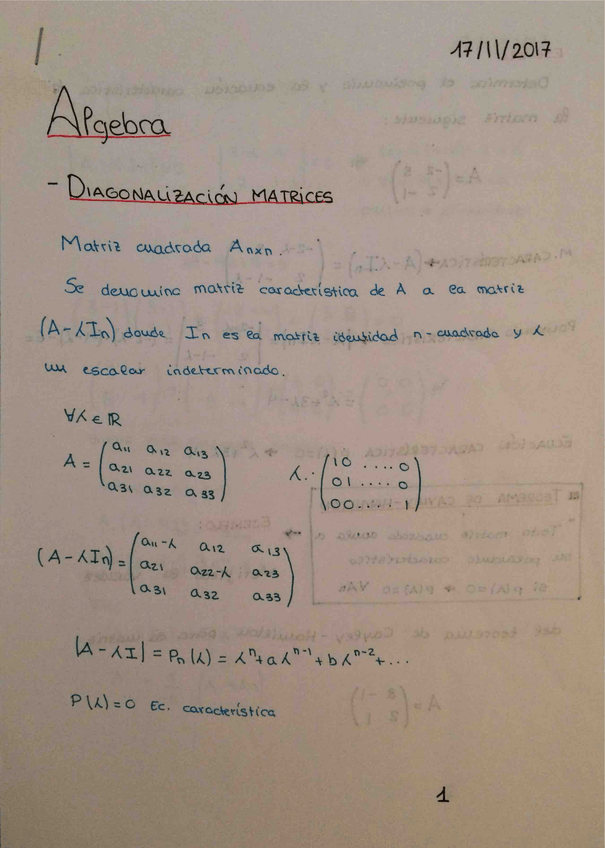 17/11/2017
Algebra
- DIAGONALIZACIÓN MATRICES
Matriz cuadrada Anxn.
Se denomina matriz característica de A a la matriz
(A-λIn) donde In es la matriz identidad n-cuadrada y λ
un escalar indeterminado.
∀λ ∈ ℝ
A = (a11 a12 a13
a21 a22 a23
a31 a32 a33)
λ · (10 .... 0
01 .... 0
00 .... 1)
(A-λIn) = (a11-λ a12 a13
a21 a22-λ a23
a31 a32 a33)
|A-λI| = Pn(λ) = λ^n + aλ^n-1 + bλ^n-2 + ...
P(λ)=0 Ec. característica
1